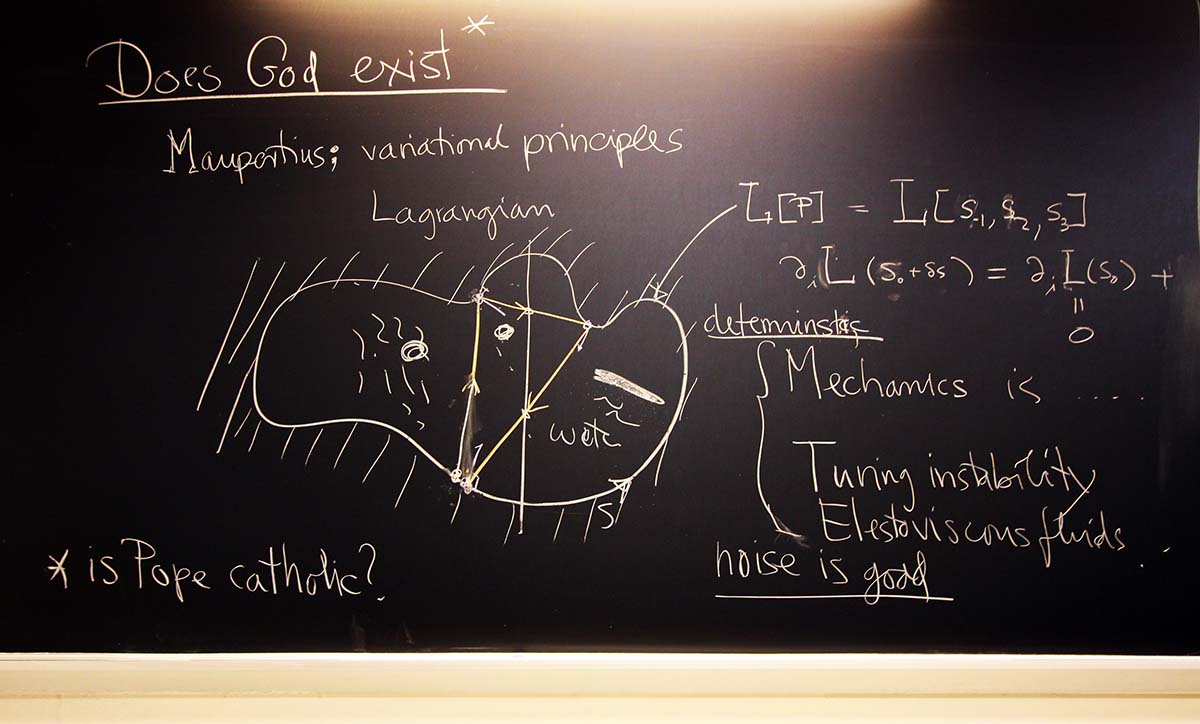 Does God exist *
Maupertius; variational principles
Lagrangian
L[P] = L[s₁, s₂, s₃]
∂ᵢL(s₀+δs) = ∂ᵢL(s₀) +
=
0
determinstic
Mechanics is .....
watch
Turing instability
Elestoviscous fluids .
S
noise is good
* is Pope catholic?